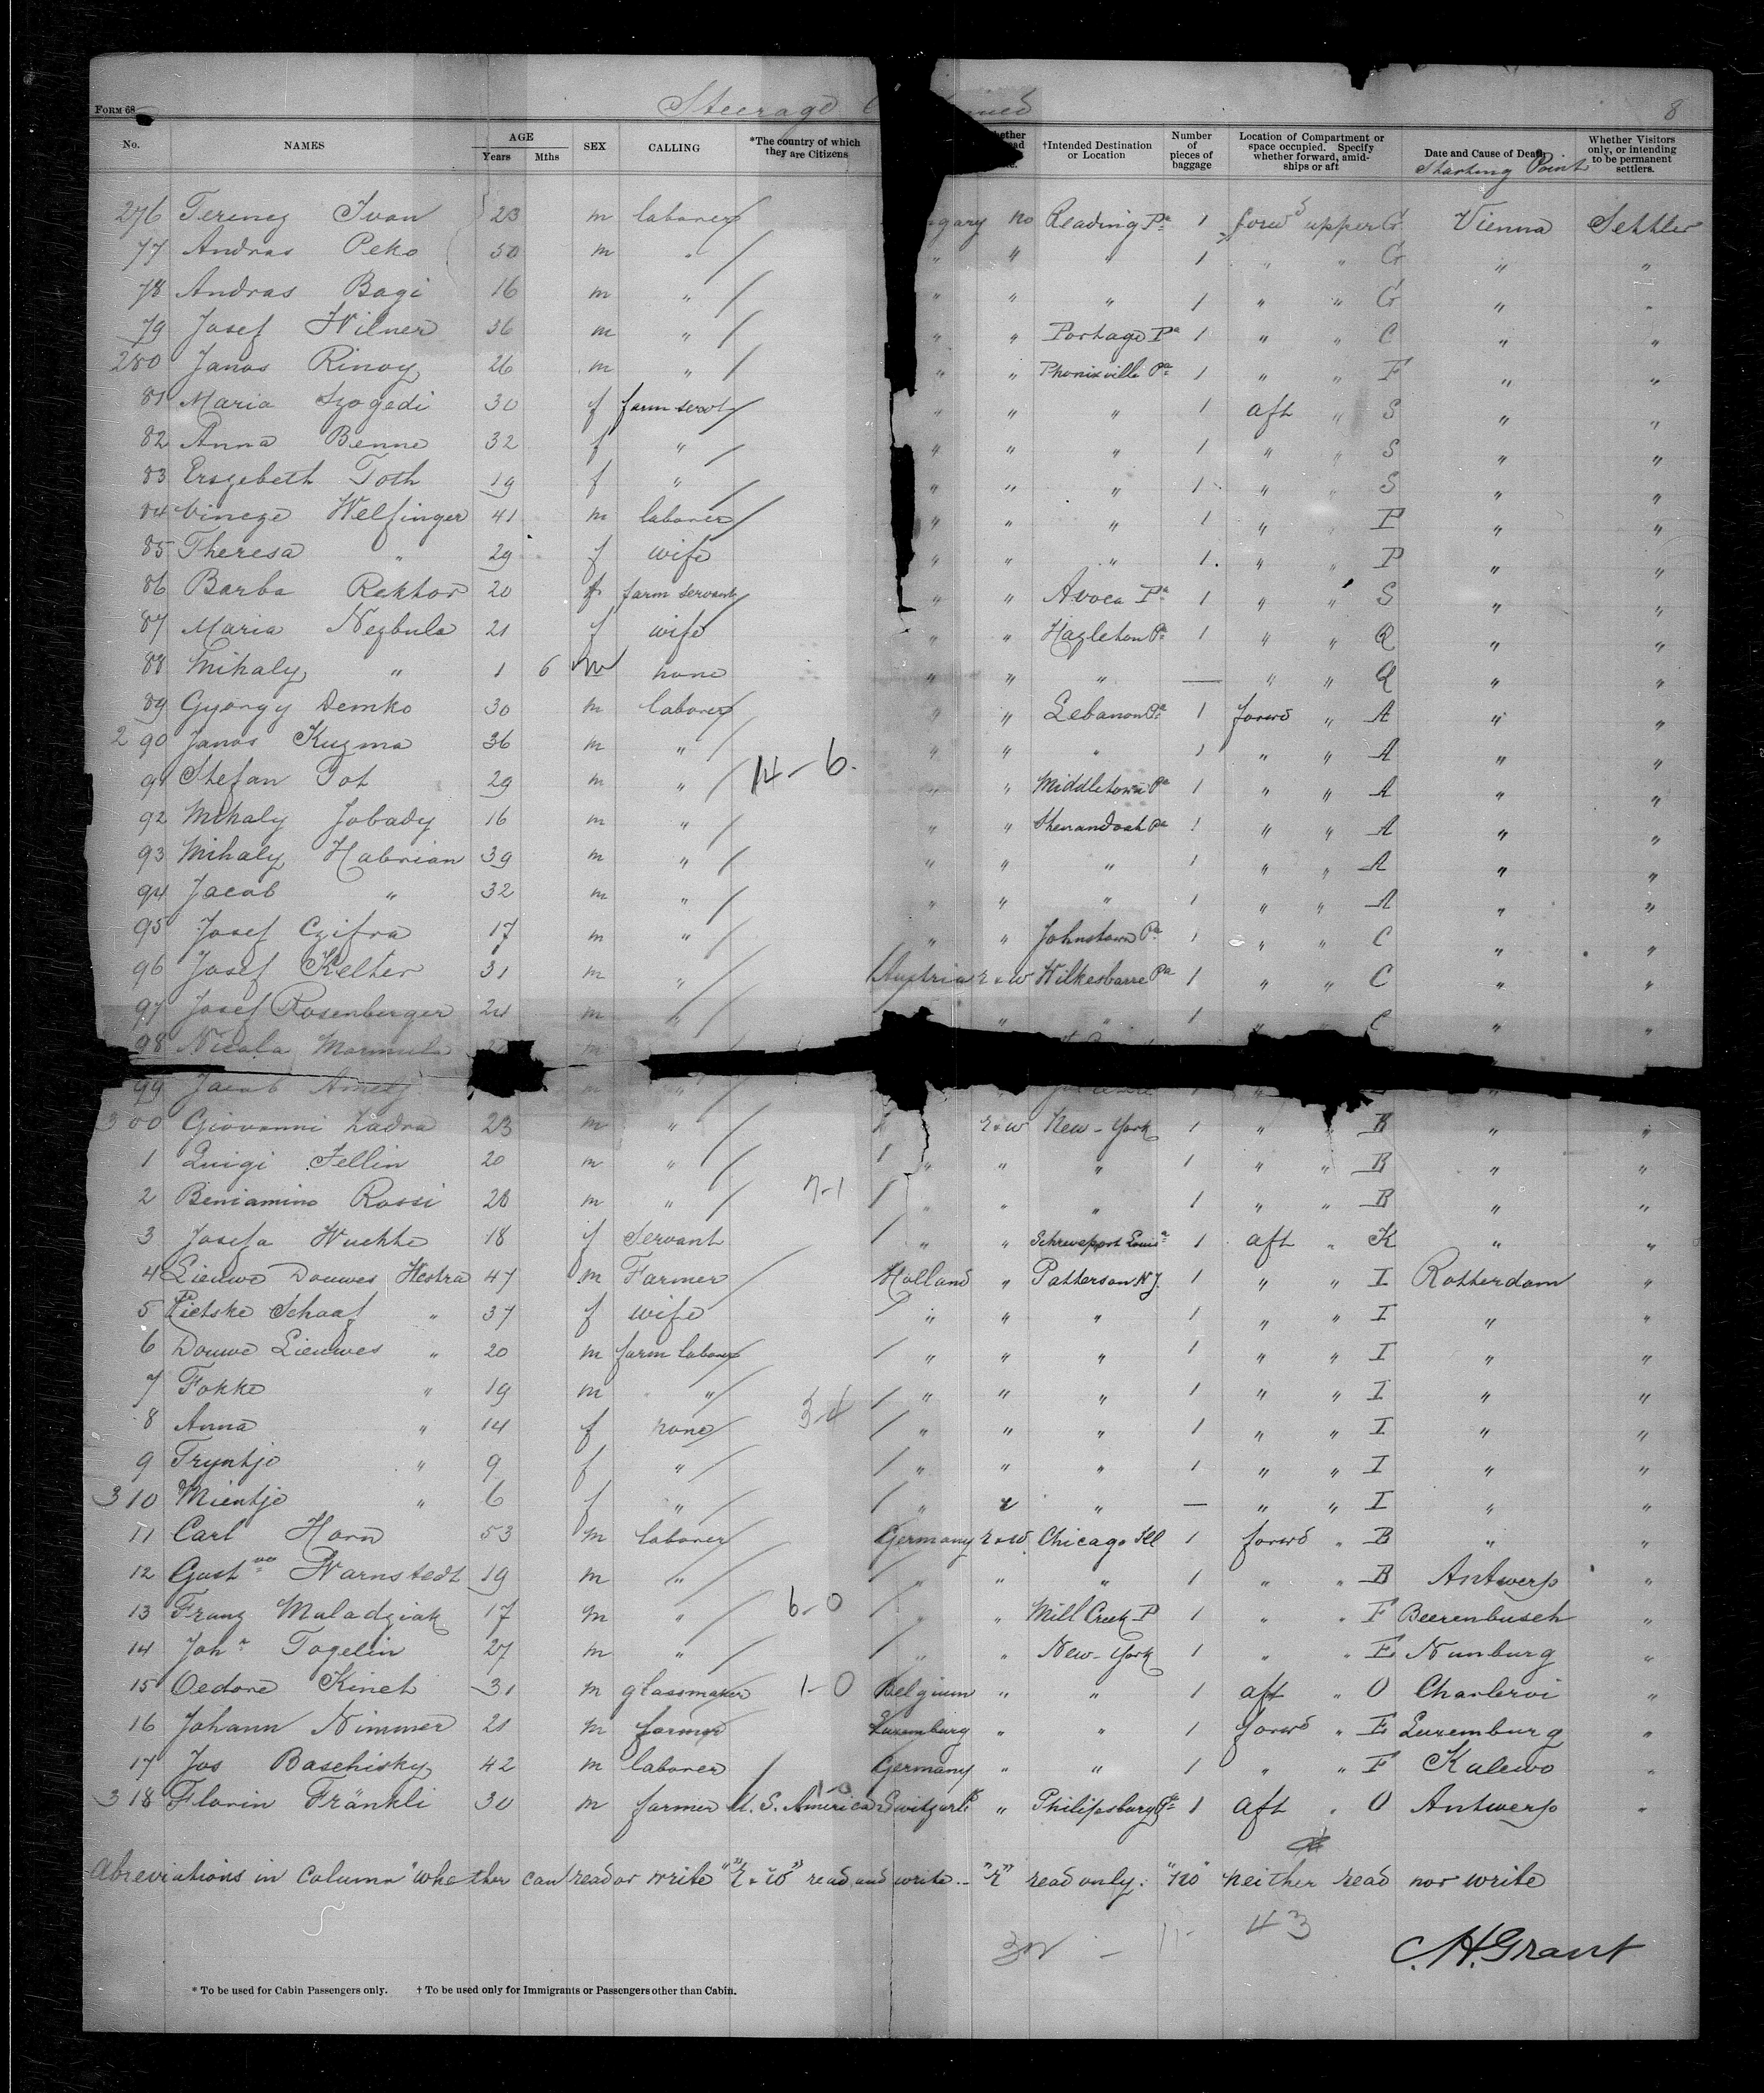 FORM 68
Steerage
8
No. NAMES AGE Years Mths SEX CALLING *The country of which they are Citizens †Intended Destination or Location Number of pieces of baggage Location of Compartment or space occupied. Specify whether forward, amidships or aft Date and Cause of Death Starting Point Whether Visitors only, or intending to be permanent settlers.
276 Ferencz Ivan 23 m laborer no Reading Pa 1 forwd upper G Vienna Settler
77 Andras Peko 50 m " " " " 1 " " G " "
78 Andras Bagi 16 m " " " " 1 " " G " "
79 Josef Wilner 36 m " " " Portage Pa 1 " " C " "
280 Janos Rinoy 26 m " " " Phonixville Pa 1 " " F " "
81 Maria Szogedi 30 f farm servt " " " 1 aft " S " "
82 Anna Benne 32 f " " " " 1 " " S " "
83 Erszebeth Toth 19 f " " " " 1 " " S " "
84 Vincze Welfinger 41 m laborer " " " 1 " " P " "
85 Theresa " 29 f wife " " " 1 " " P " "
86 Barba Rektor 20 f farm servant " " Avoca Pa 1 " " S " "
87 Maria Nezbula 21 f wife " " Hazleton Pa 1 " " Q " "
88 Mihaly " 1 6 m none " " " — " " Q " "
89 Gyorgy Demko 30 m laborer " " Lebanon Pa 1 forwd " A " "
290 Janos Kuzma 36 m " " " " 1 " " A " "
91 Stefan Tot 29 m " 14-6. " " Middletown Pa 1 " " A " "
92 Mihaly Jobady 16 m " " " Shenandoah Pa 1 " " A " "
93 Mihaly Habrian 39 m " " " " 1 " " A " "
94 Jacob " 32 m " " " " 1 " " A " "
95 Josef Czifra 17 m " " " Johnstown Pa 1 " " C " "
96 Josef Kelter 31 m " Austria r+w Wilkesbarre Pa 1 " " C " "
97 Josef Rosenberger 24 m " " " 1 " " C " "
98 Nicola Marmula m
99 Jacob m "
300 Giovanni Zadra 23 m " r+w New-York 1 " " B " "
1 Luigi Fellin 20 m " " " " 1 " " B " "
2 Beniamino Rossi 28 m " 7-1 " " " 1 " " B " "
3 Josefa Wuchte 18 f Servant " " Schreveport Louisa 1 aft " K " "
4 Lieuwe Douwes Hestra 47 m Farmer Holland " Patterson N.J. 1 " " I Rotterdam "
5 Pietske Schaaf " 37 f wife " " " 1 " " I " "
6 Douwe Lieuwes " 20 m farm laborer " " " 1 " " I " "
7 Fokke " 19 m " " " " " 1 " " I " "
8 Anna " 14 f none 3-4 " " " 1 " " I " "
9 Tryntje " 9 f " " " " 1 " " I " "
310 Mientje " 6 f " " " — " " I " "
11 Carl Horn 53 m laborer Germany r+w. Chicago Ill 1 forwd " B " "
12 Gustav Warnstedt 19 m " " " " 1 " " B Antwerp "
13 Franz Maladziak 17 m " 6-0 " " Mill Creek P 1 " " F Beerenbusch "
14 Johr Togelin 27 m " " " New-York 1 " " E Nunburg "
15 Oedore Kinet 31 m glassmaker 1-0 Belgium " " 1 aft " O Charleroi "
16 Johann Nimmer 21 m farmer Luxemburg " " 1 forwd " E Luxemburg "
17 Jos Baschisky 42 m laborer Germany " " 1 " " F Kulewo "
318 Florin Fränkli 30 m farmer U. S. America 1-0 Switzerld " Philipsburg Pa 1 aft " O Antwerp "
Abreviations in column "whether can read or write "r & w" read and write — "r" read only. "no" neither read nor write
43
C. H. Grant
* To be used for Cabin Passengers only. † To be used only for Immigrants or Passengers other than Cabin.